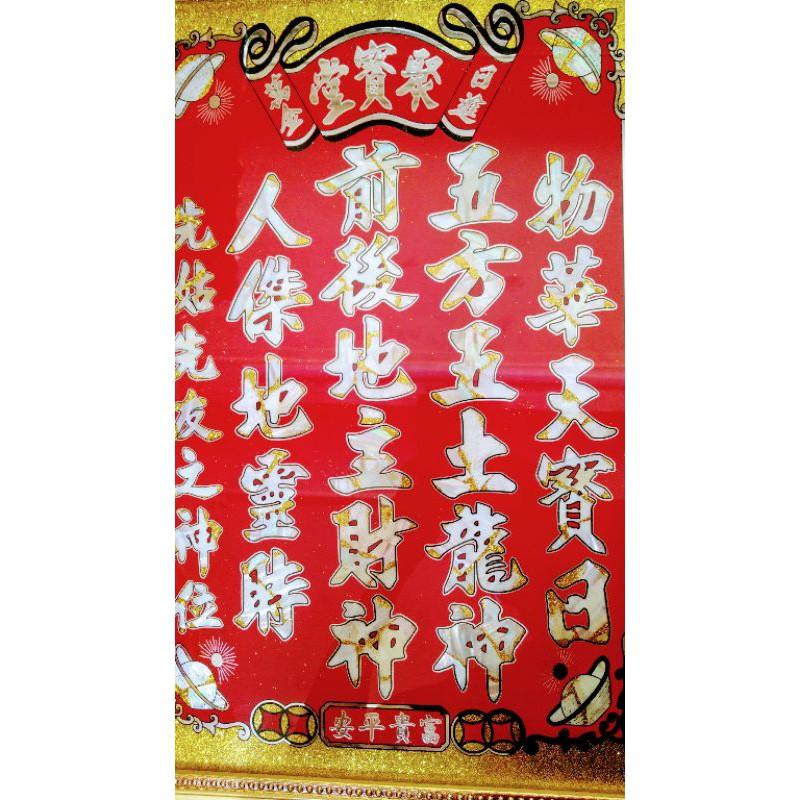 日進
聚寶堂
萬金
物華天寶日
五方五土龍神
前後地主財神
人傑地靈時
先姑先友之神位
富貴平安